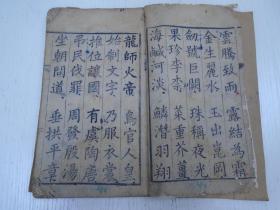 雲騰致雨 露結為霜
金生麗水 玉出崑岡
劍號巨闕 珠稱夜光
果珍李柰 菜重芥薑
海鹹河淡 鱗潛羽翔
龍師火帝 鳥官人皇
始制文字 乃服衣裳
推位讓國 有虞陶唐
吊民伐罪 周發殷湯
坐朝問道 垂拱平章